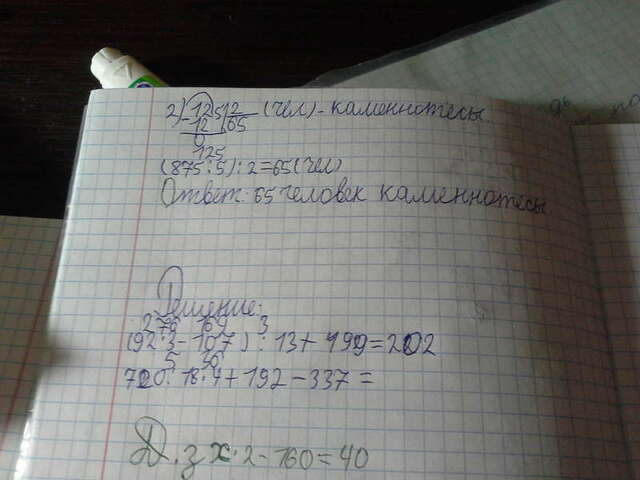 2) 125 | 2 (чел) - каменнотесы.
- 12 | 65
0
125
(875 : 5) : 2 = 65 (чел)
Ответ: 65 человек каменнотесы.
Решение:
276 169 3
(92 · 3 - 107) : 13 + 199 = 202
5 36
720 : 18 · 4 + 192 - 337 =
Д. з х · 2 - 160 = 40